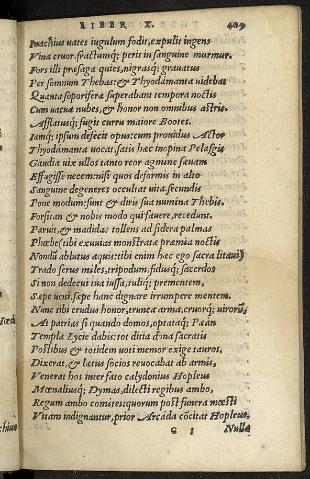 LIBER X.
489
Inachius uates iugulum fodit, expulit ingens
Vina cruor, fractumq; perit in sanguine murmur.
Fors illi præsaga quies, nigrasq; grauatus
Per somnum Thebas: & Thyodamanta videbat
Quanta soporiferæ superabant tempora noctis
Cum uacuæ nubes, & honor non omnibus astris.
Afflatusq; fugit curru maiore Bootes.
Iamq; ipsum defecit opus: cum prouidus Actor
Thyodamanta uocat, satis hæc inopina Pelasgis
Gaudia uix ullos tanto reor agmine sæuam
Effugisse necem: nisi quos deformis in alto
Sanguine degeneres occultat uita. secundis
Pone modum: sunt & diris sua numina Thebis.
Forsitan & nobis modo qui fauere, recedunt.
Paruit, & madidas tollens ad sidera palmas
Phœbe, tibi exuuias monstratæ præmia noctis
Nondū ablutus aquis: tibi enim hæc ego sacra litaui
Trado ferus miles, tripodum, fidusq; sacerdos
Si non dedecui tua iussa, tuliq; prementem,
Sæpe ueni, sæpe hanc dignare irrumpere mentem.
Nunc tibi crudus honor, trunca arma, cruorq; uirorū,
At patrias si quando domos, optataq; Pæan
Templa Lycie dabis: tot ditia dona sacratis
Postibus & totidem uoti memor exige tauros,
Dixerat, & lætus socios reuocabat ab armis,
Venerat hos inter fato calydonius Hopleus
Mœnaliusq; Dymas, dilecti regibus ambo,
Regum ambo comites: quorum post funera mœsti
Vitam indignantur, prior Arcada cōcitat Hopleus,
G I
Nulla